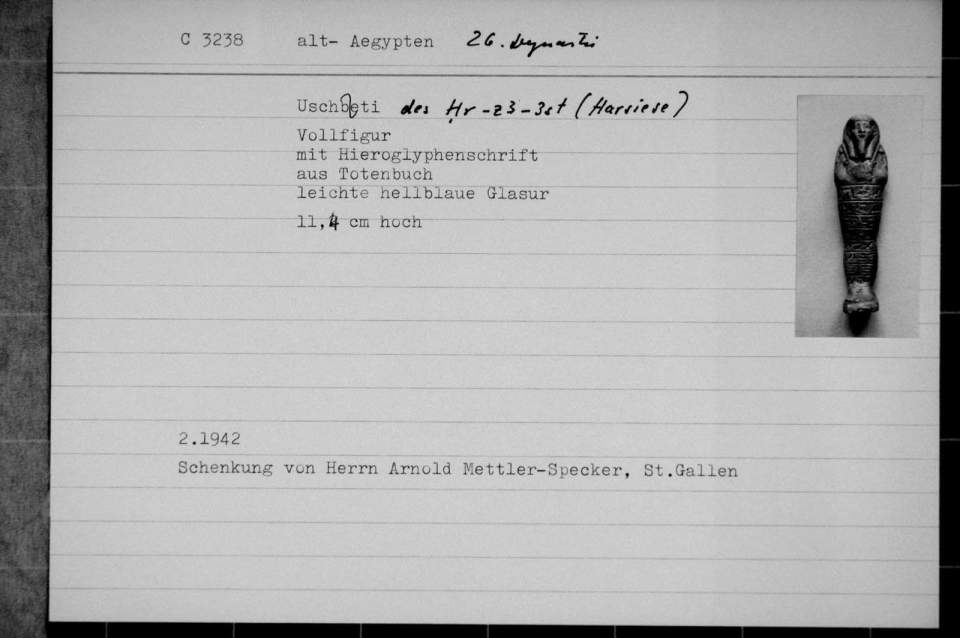 C 3238 alt- Aegypten 26. Dynastie
Uschbeti des Ḥr-z3-3st (Harsiese)
Vollfigur
mit Hieroglyphenschrift
aus Totenbuch
leichte hellblaue Glasur
11,4 cm hoch
2.1942
Schenkung von Herrn Arnold Mettler-Specker, St.Gallen